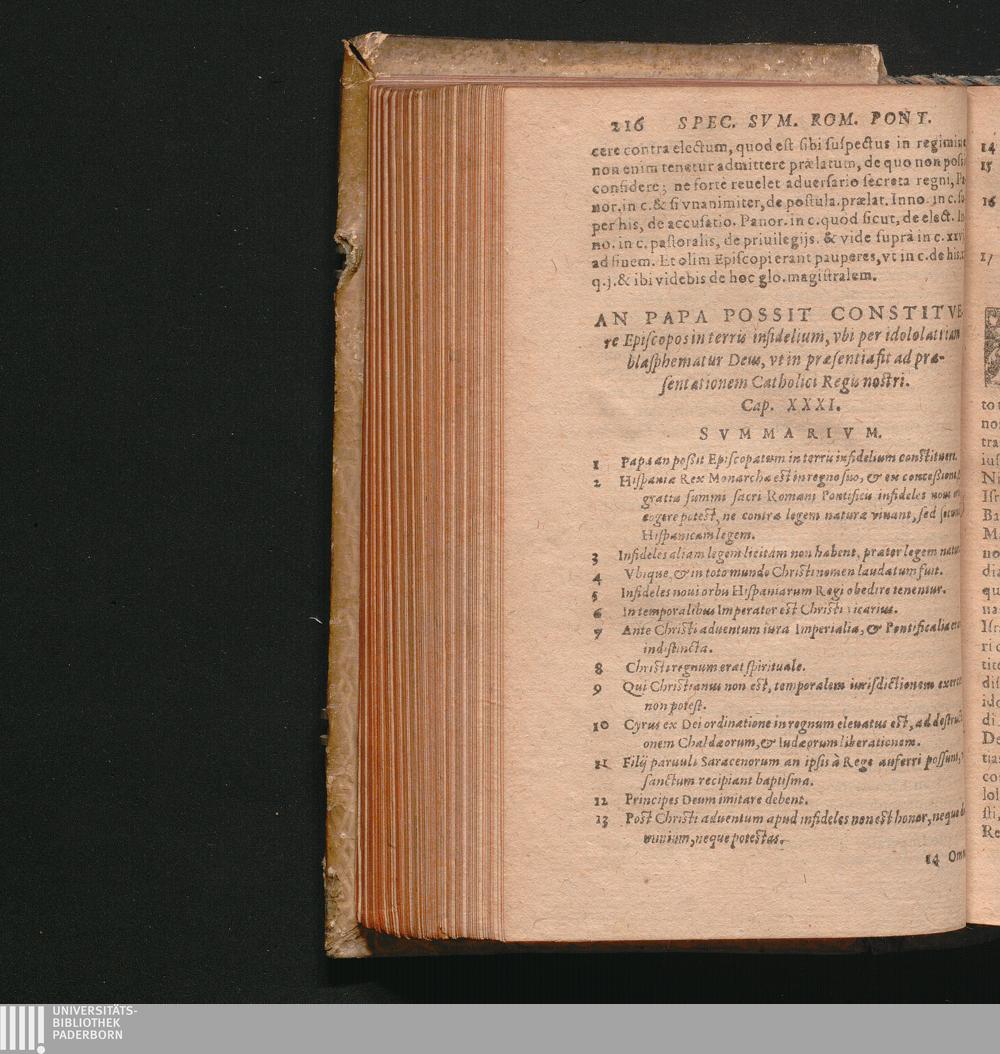 216 SPEC. SVM. ROM. PONT.
cere contra electum, quod est sibi suspectus in regimine
non enim tenetur admittere prælatum, de quo non
confidere; ne fortè reuelet aduersario secreta regni,
nor. in c. & si vnanimiter, de postula. prælat. Inno. in c.
per his, de accusatio. Panor. in c. quod sicut, de elect.
no. in c. pastoralis, de priuilegijs. & vide suprà in c.
ad finem. Et olim Episcopi erant pauperes, vt in c. de his.
q. j. & ibi videbis de hoc glo. magistralem.
AN PAPA POSSIT CONSTITVE
re Episcopos in terris infidelium, vbi per idololatriam
blasphematur Deus, vt in præsentia fit ad præ-
sentationem Catholici Regis nostri.
Cap. XXXI.
SVMMARIVM.
1 Papa an possit Episcopatum in terris infidelium constituere.
2 Hispaniæ Rex Monarcha est in regno suo, & ex concessione,
gratia summi sacri Romani Pontificis infideles noui
cogere potest, ne contra legem naturæ viuant, sed
Hispanicam legem.
3 Infideles aliam legem licitam non habent, præter legem
4 Vbique, & in toto mundo Christi nomen laudatum fuit.
5 Infideles noui orbis Hispaniarum Regi obedire tenentur.
6 In temporalibus Imperator est Christi vicarius.
7 Ante Christi aduentum iura Imperialia, & Pontificalia
indistincta.
8 Christi regnum erat spirituale.
9 Qui Christianus non est, temporalem iurisdictionem
non potest.
10 Cyrus ex Dei ordinatione in regnum eleuatus est, ad
onem Chaldæorum, & Iudæorum liberationem.
11 Filij paruuli Saracenorum an ipsis à Rege auferri possunt,
sanctum recipiant baptisma.
12 Principes Deum imitare debent.
13 Post Christi aduentum apud infideles non est honor, neque
minium, neque potestas.
14
14
15
16
17
UNIVERSITÄTS-
BIBLIOTHEK
PADERBORN